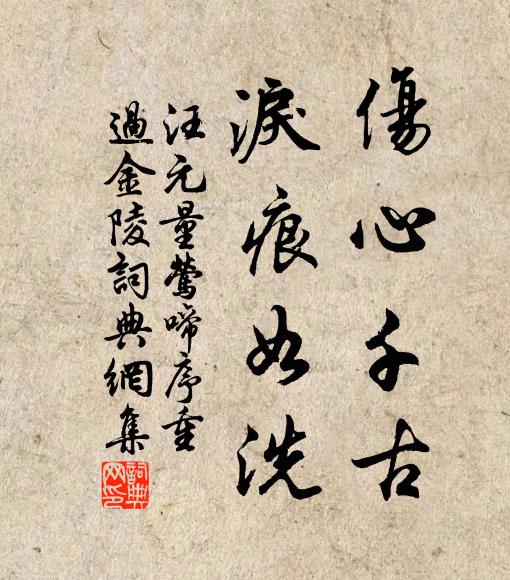 傷心千古
淚痕如洗
汪元量鶯啼序重
過金陵詞典網集
詞典
网印